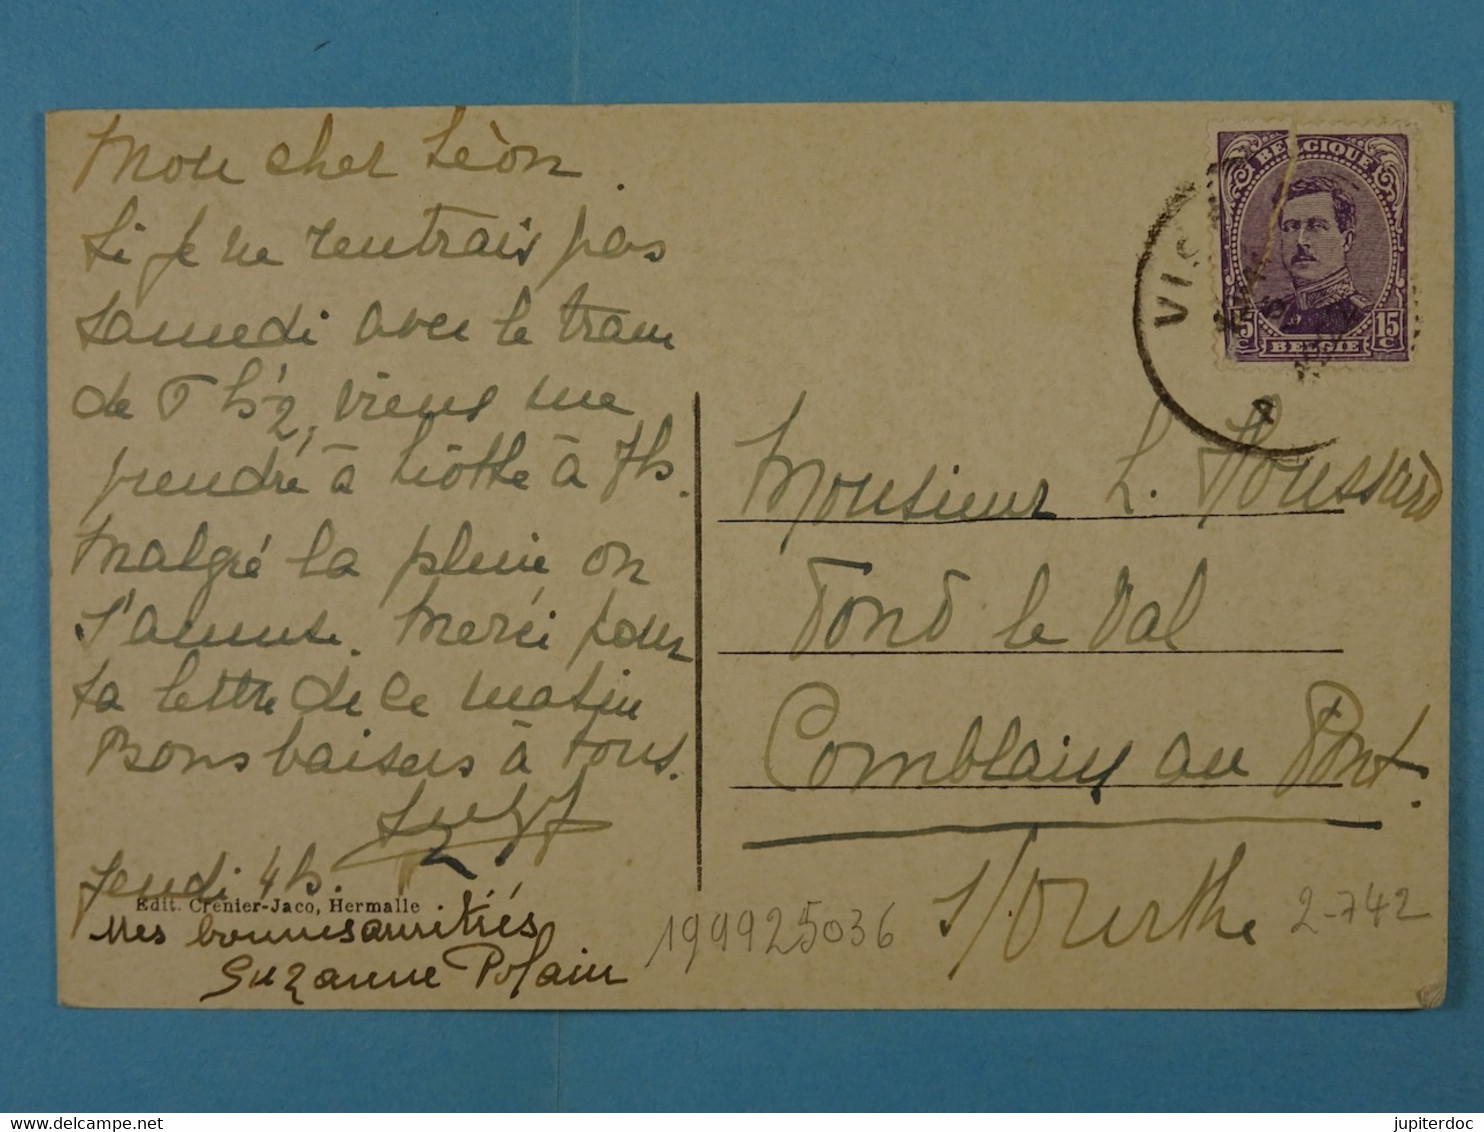 Mon cher Léon.
Si je ne rentrais pas
samedi avec le tram
de 5 h ½, viens me
prendre à Liotte à 7h.
Malgré la pluie on
s'amuse. Merci pour
ta lettre de ce matin
Bons baisers à tous.
Jeudi 4h.
Edit. Crenier-Jaco, Hermalle
Mes bonnes amitiés
Suzanne Polain
BELGIQUE
15c 15c
BELGIE
VIS
A
Monsieur L. Houssard
Fond le Val
Comblain au Pont.
s/Ourthe
199925036
2-742
jupiterdoc